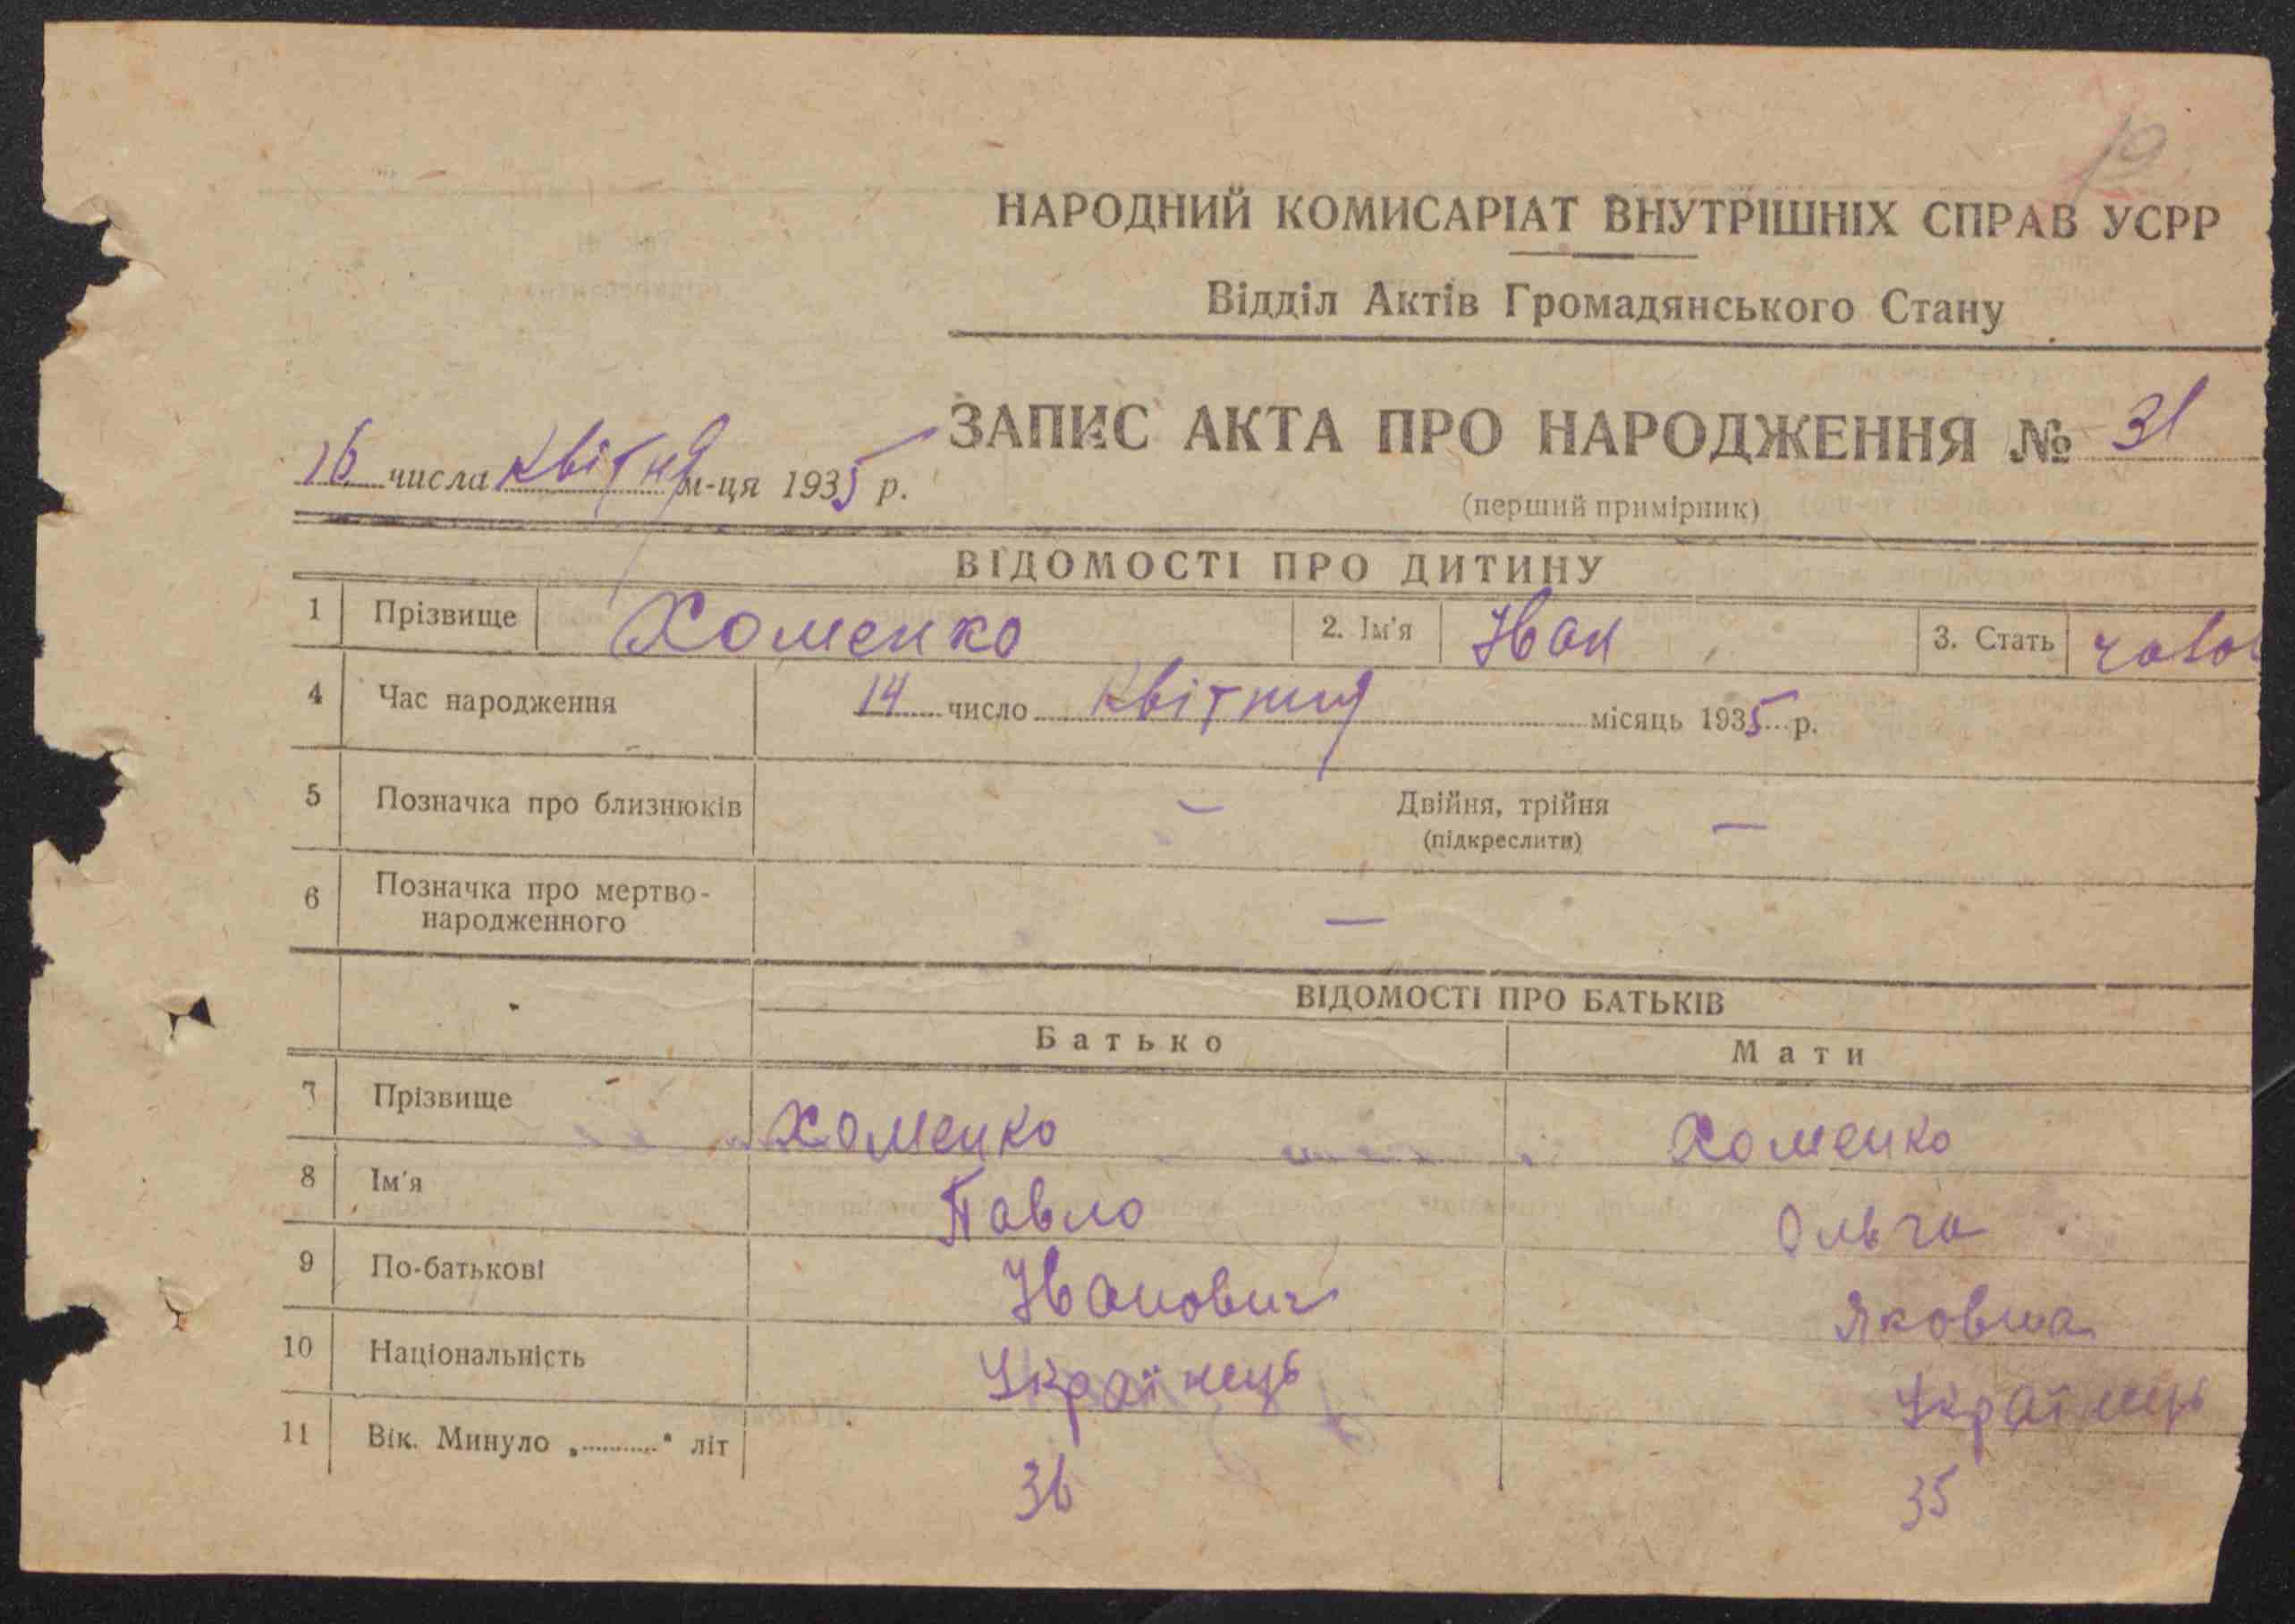 19
НАРОДНИЙ КОМИСАРІАТ ВНУТРІШНІХ СПРАВ УСРР
Відділ Актів Громадянського Стану
ЗАПИС АКТА ПРО НАРОДЖЕННЯ № 31
16 числа квітня м-ця 1935 р.
(перший примірник)
ВІДОМОСТІ ПРО ДИТИНУ
1 Прізвище Хоменко 2. Ім'я Іван 3. Стать чолов
4 Час народження 14 число квітня місяць 1935 р.
5 Позначка про близнюків — Двійня, трійня —
(підкреслити)
6 Позначка про мертво-
народженного —
ВІДОМОСТІ ПРО БАТЬКІВ
Батько Мати
7 Прізвище Хоменко Хоменко
8 Ім'я Павло Ольга
9 По-батькові Іванович Яковна
10 Національність Українець Українець
11 Вік. Минуло „..........“ літ 36 35